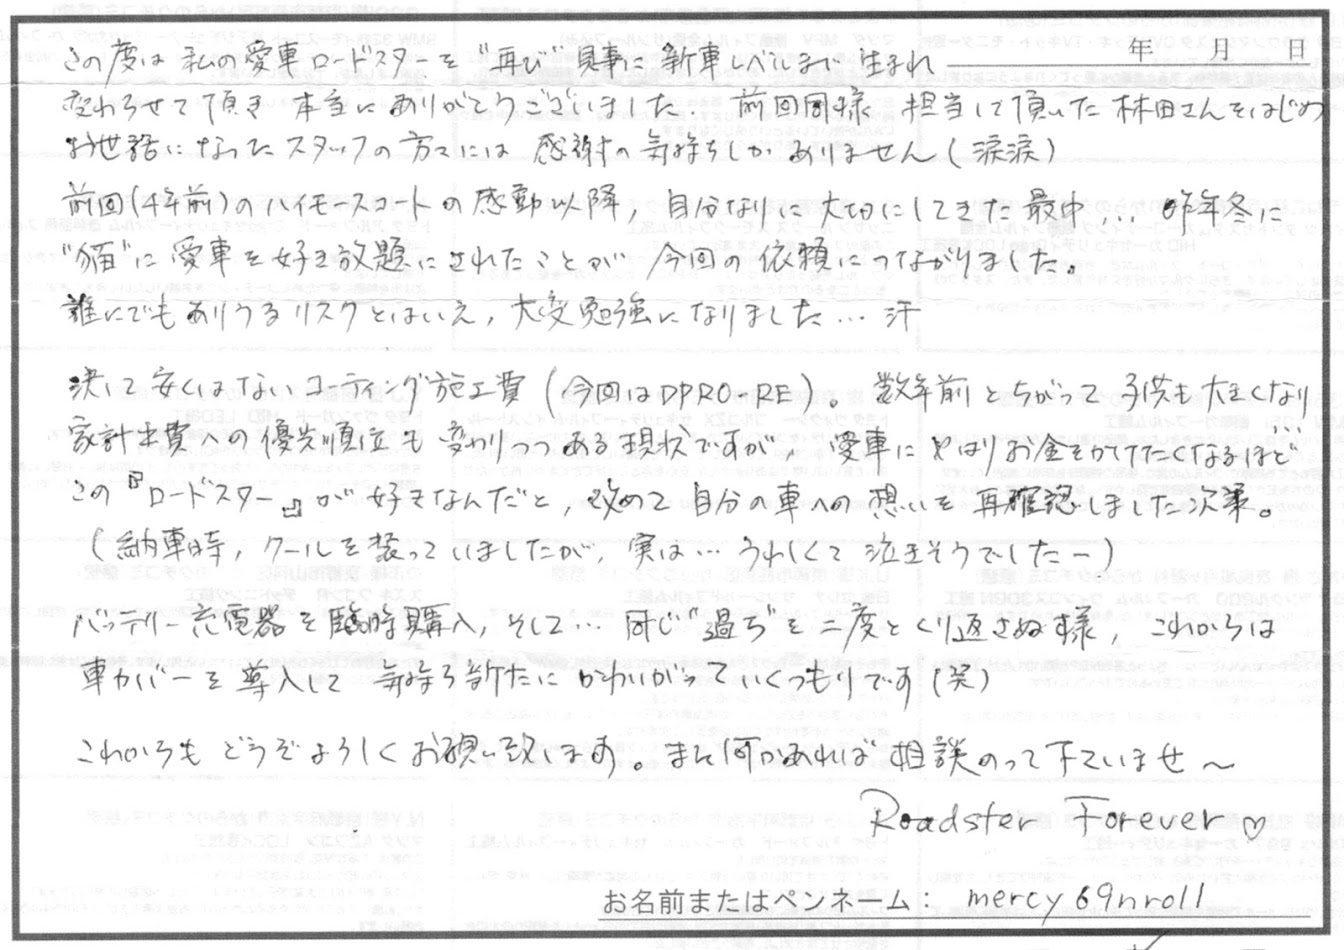 年 月 日
この度は私の愛車ロードスターを“再び”見事に新車レベルまで生まれ
変わらせて頂き本当にありがとうございました。前回同様、担当して頂いた林田さんをはじめ
お世話になったスタッフの方々には感謝の気持ちしかありません(涙涙)
前回(4年前)のハイモースコートの感動以降,自分なりに大切にしてきた最中…昨年冬に
“猫”に愛車を好き放題にされたことが今回の依頼につながりました。
誰にでもありうるリスクとはいえ,大変勉強になりました…汗
決して安くはないコーティング施工費(今回はDPRO:RE)。数年前とちがって子供も大きくなり
家計出費への優先順位も変わりつつある現状ですが、愛車にやはりお金をかけたくなるほど
この『ロードスター』が好きなんだと,改めて自分の車への想いを再確認しました次第。
(納車時,クールを装っていましたが,実は…うれしくて泣きそうでしたー)
バッテリー充電器を臨時購入,そして…同じ“過ち”を二度とくり返さぬ様,これからは
車カバーを導入して気持ち新たにかわいがっていくつもりです(笑)
これからもどうぞよろしくお願い致します。また何かあれば相談のって下さいませ～
Roadster Forever♡
お名前またはペンネーム： mercy69nroll